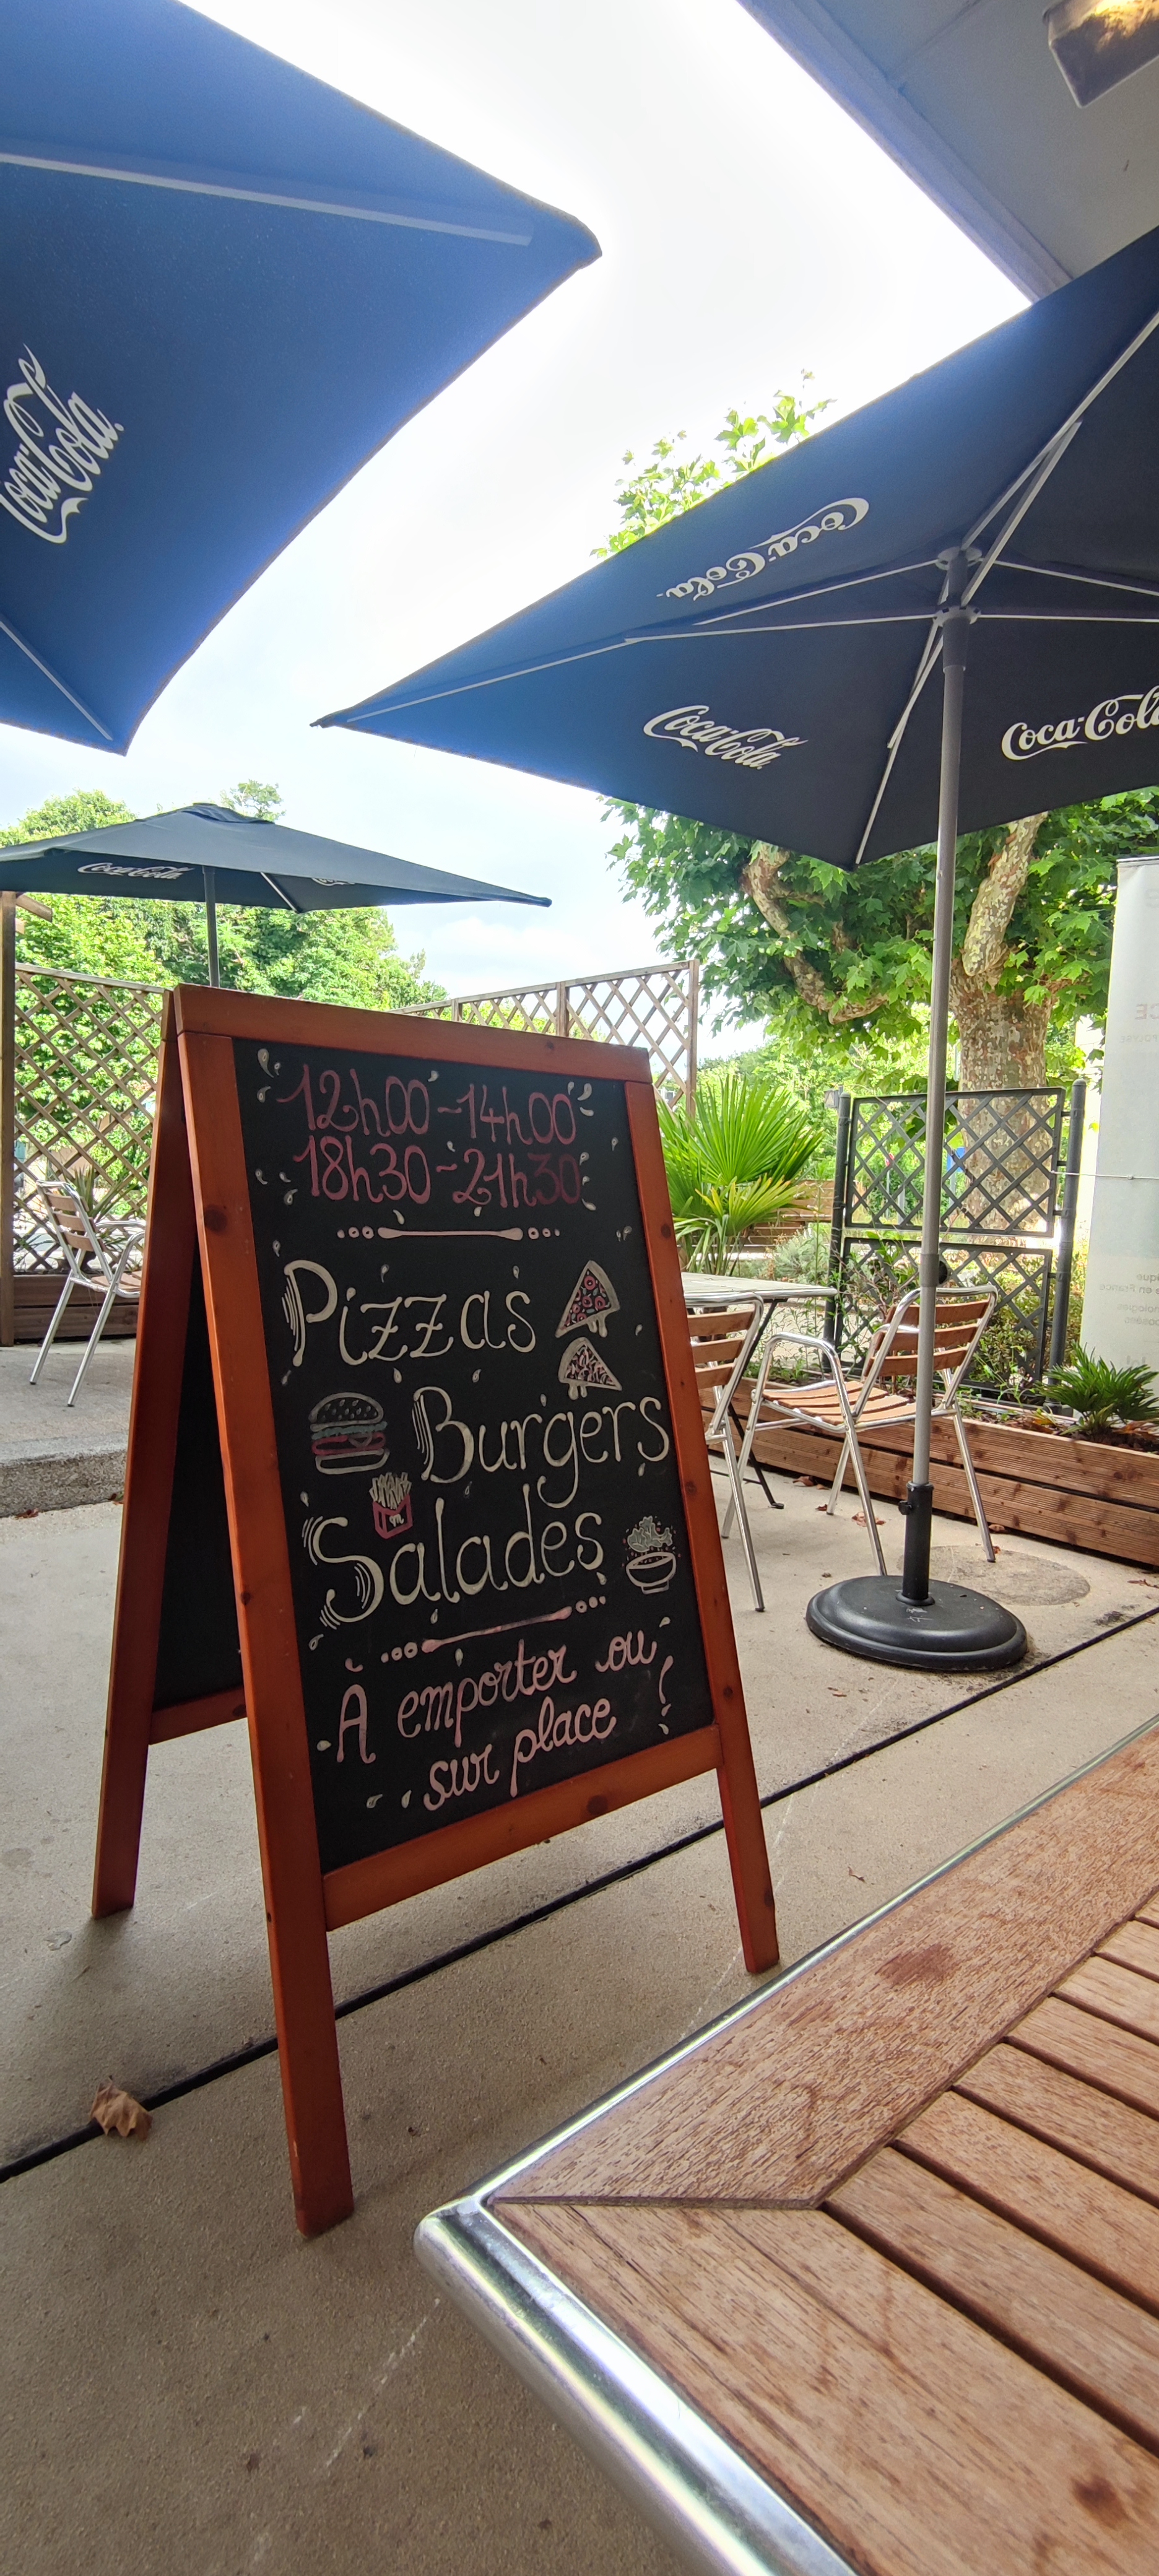 Coca-Cola
Coca-Cola
Coca-Cola
Coca-Cola
Coca-Cola
12h00-14h00
18h30-21h30
Pizzas
Burgers
Salades
À emporter ou
sur place !
en France